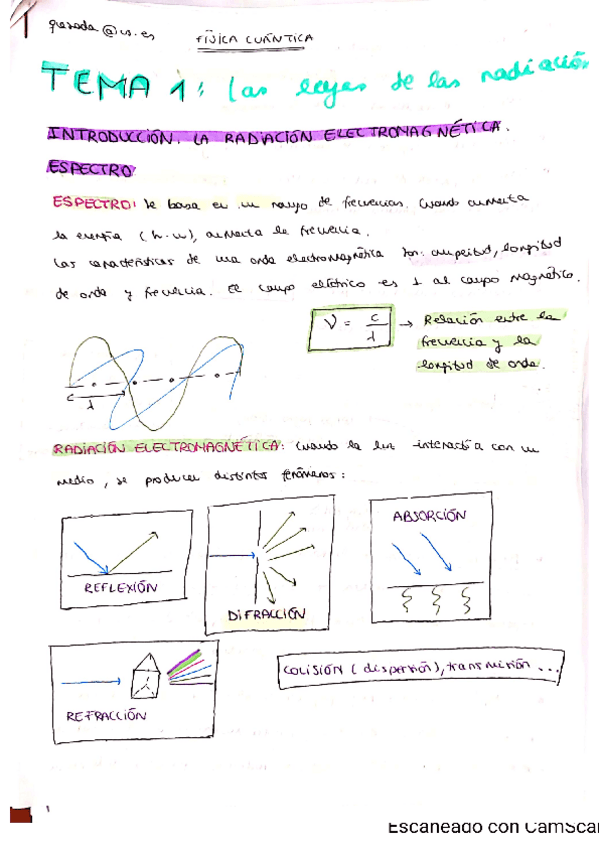 quesada@us.es
FÍSICA CUÁNTICA
TEMA 1: Las leyes de las radiación
INTRODUCCIÓN. LA RADIACIÓN ELECTROMAGNÉTICA.
ESPECTRO
ESPECTRO: se basa en un rango de frecuencias. Cuando aumenta
la energía (h·ν), aumenta la frecuencia.
Las características de una onda electromagnética son: amplitud, longitud
de onda y frecuencia. El campo eléctrico es ⊥ al campo magnético.
ν = c/λ → Relación entre la
frecuencia y la
longitud de onda.
c
λ
RADIACIÓN ELECTROMAGNÉTICA: Cuando la luz interactúa con un
medio, se producen distintos fenómenos:
REFLEXIÓN
DIFRACCIÓN
ABSORCIÓN
REFRACCIÓN
COLISIÓN (dispersión), transmisión ...
1
Escaneado con CamScan